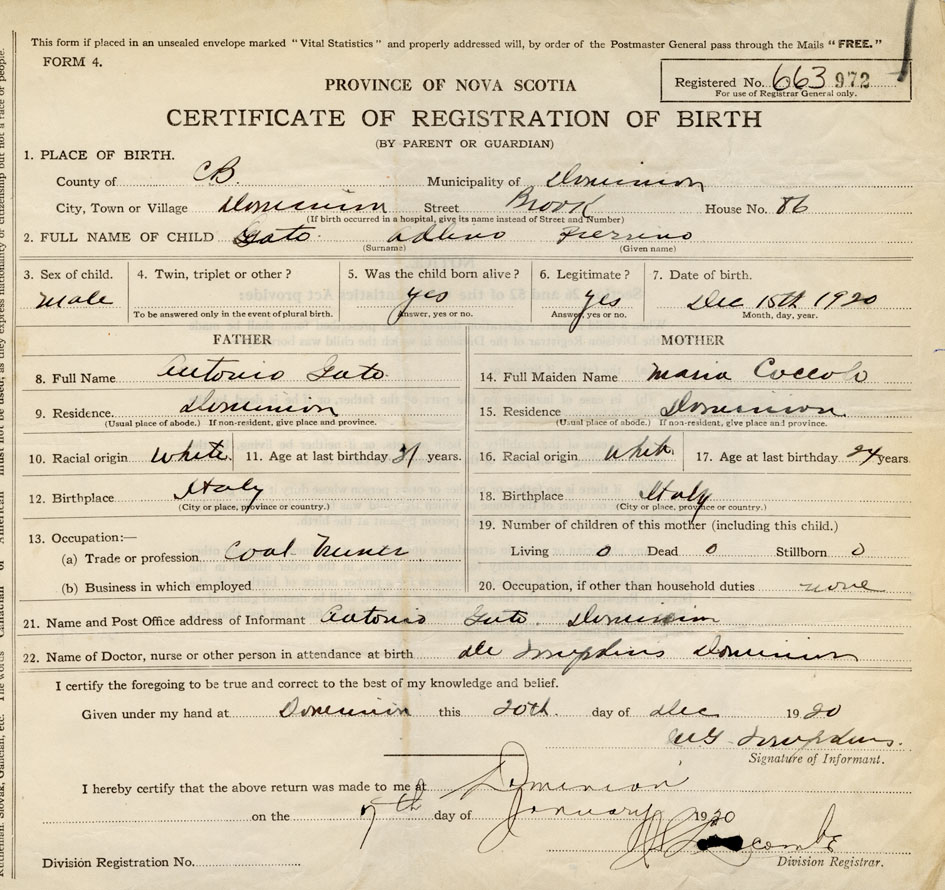 This form if placed in an unsealed envelope marked "Vital Statistics" and properly addressed will, by order of the Postmaster General pass through the Mails "FREE."
FORM 4.
Registered No. 663 972
For use of Registrar General only.
PROVINCE OF NOVA SCOTIA
CERTIFICATE OF REGISTRATION OF BIRTH
(BY PARENT OR GUARDIAN)
1. PLACE OF BIRTH.
County of CB. Municipality of Dominion
City, Town or Village Dominion Street Brook House No. 86
(If birth occurred in a hospital, give its name instead of Street and Number)
2. FULL NAME OF CHILD Gato Adlino Pierrino
(Surname) (Given name)
3. Sex of child. 4. Twin, triplet or other? 5. Was the child born alive? 6. Legitimate? 7. Date of birth.
Male yes yes Dec 15th 1920
To be answered only in the event of plural birth. Answer, yes or no. Answer, yes or no. Month, day, year.
FATHER
8. Full Name Antonio Gato
9. Residence. Dominion
(Usual place of abode.) If non-resident, give place and province.
10. Racial origin White 11. Age at last birthday 31 years.
12. Birthplace Italy
(City or place, province or country.)
13. Occupation:—
(a) Trade or profession Coal Miner
(b) Business in which employed
MOTHER
14. Full Maiden Name Maria Coccolo
15. Residence Dominion
(Usual place of abode.) If non-resident, give place and province.
16. Racial origin White 17. Age at last birthday 24 years.
18. Birthplace Italy
(City or place, province or country.)
19. Number of children of this mother (including this child.)
Living 0 Dead 0 Stillborn 0
20. Occupation, if other than household duties none
21. Name and Post Office address of Informant Antonio Gato. Dominion
22. Name of Doctor, nurse or other person in attendance at birth Dominion
I certify the foregoing to be true and correct to the best of my knowledge and belief.
Given under my hand at Dominion this 20th day of Dec 1920
Signature of Informant.
I hereby certify that the above return was made to me at Dominion
on the 7th day of January 1920
Division Registration No.
Division Registrar.